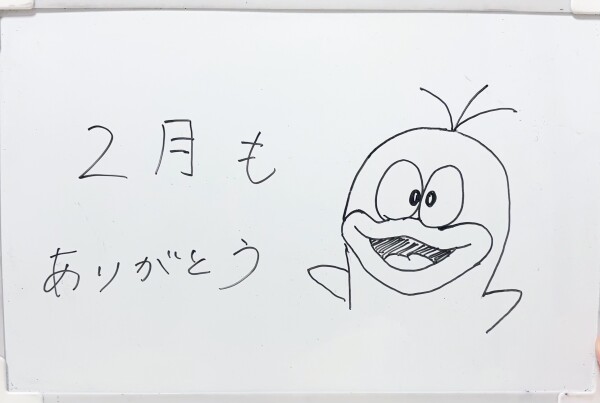 2月も
ありがとう